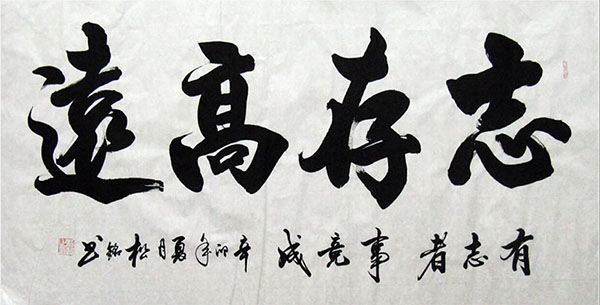 志存高遠
有志者事竟成 辛卯年夏月松銘书